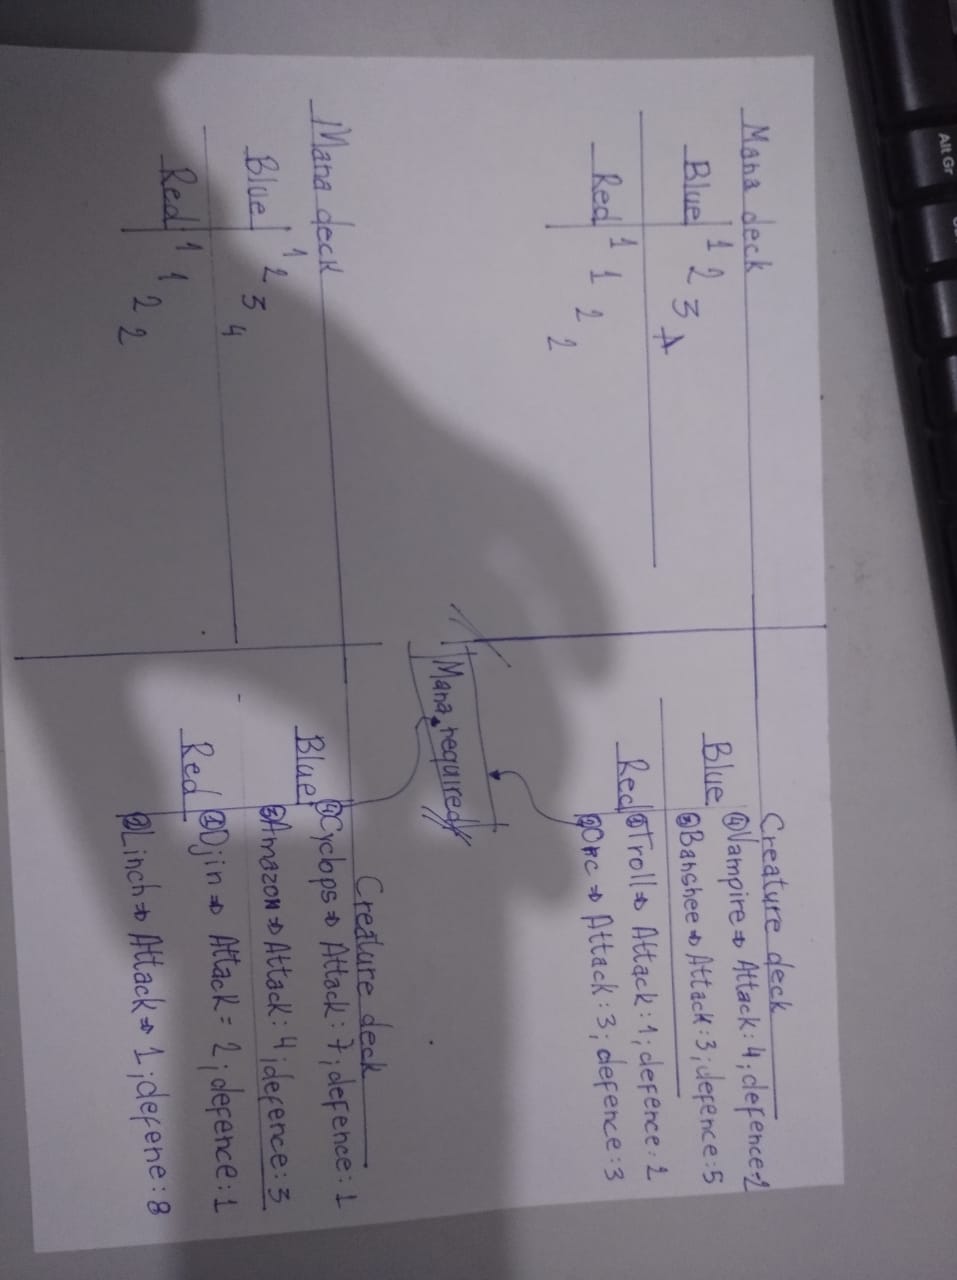 Alt Gr
Mana deck
Blue 1 2 3 4
Red 1 1 2 2
Creature deck
Blue ④Vampire⇒ Attack: 4; defence:2
③Banshee⇒Attack:3;defence:5
Red ①Troll⇒ Attack:1; defence:2
②Orc⇒ Attack:3; defence:3
Mana required
Mana deck
Blue 1 2 3 4
Red 1 1 2 2
Creature deck
Blue ④Cyclops⇒ Attack:7; defence:1
③Amazon⇒Attack:4;defence:3
Red ①Djin⇒ Attack=2; defence:1
②Linch⇒Attack⇒1;defene:8